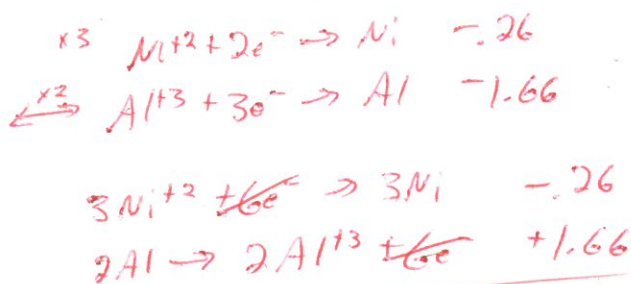 x3 Ni+2 + 2e- → Ni -.26
x2 Al+3 + 3e- → Al -1.66
3Ni+2 +6e- → 3Ni -.26
2Al → 2Al+3 +6e +1.66